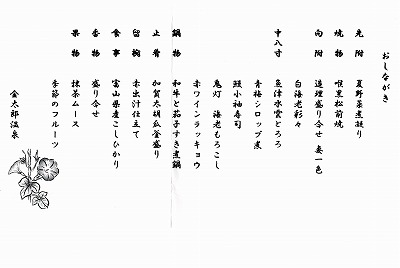 おしながき
先附 夏野菜煮凝り
焼物 喉黒松前焼
向附 造理盛り合せ 妻一色
白海老彩々
中八寸 魚津水雲とろろ
青梅シロップ煮
鰻小袖寿司
鬼灯 海老もろこし
赤ワインラッキョウ
鍋物 和牛と茄子すき煮鍋
止肴 加賀太胡瓜釜盛り
留椀 赤出汁仕立て
食事 富山県産こしひかり
香物 盛り合せ
果物 抹茶ムース
季節のフルーツ
金太郎温泉